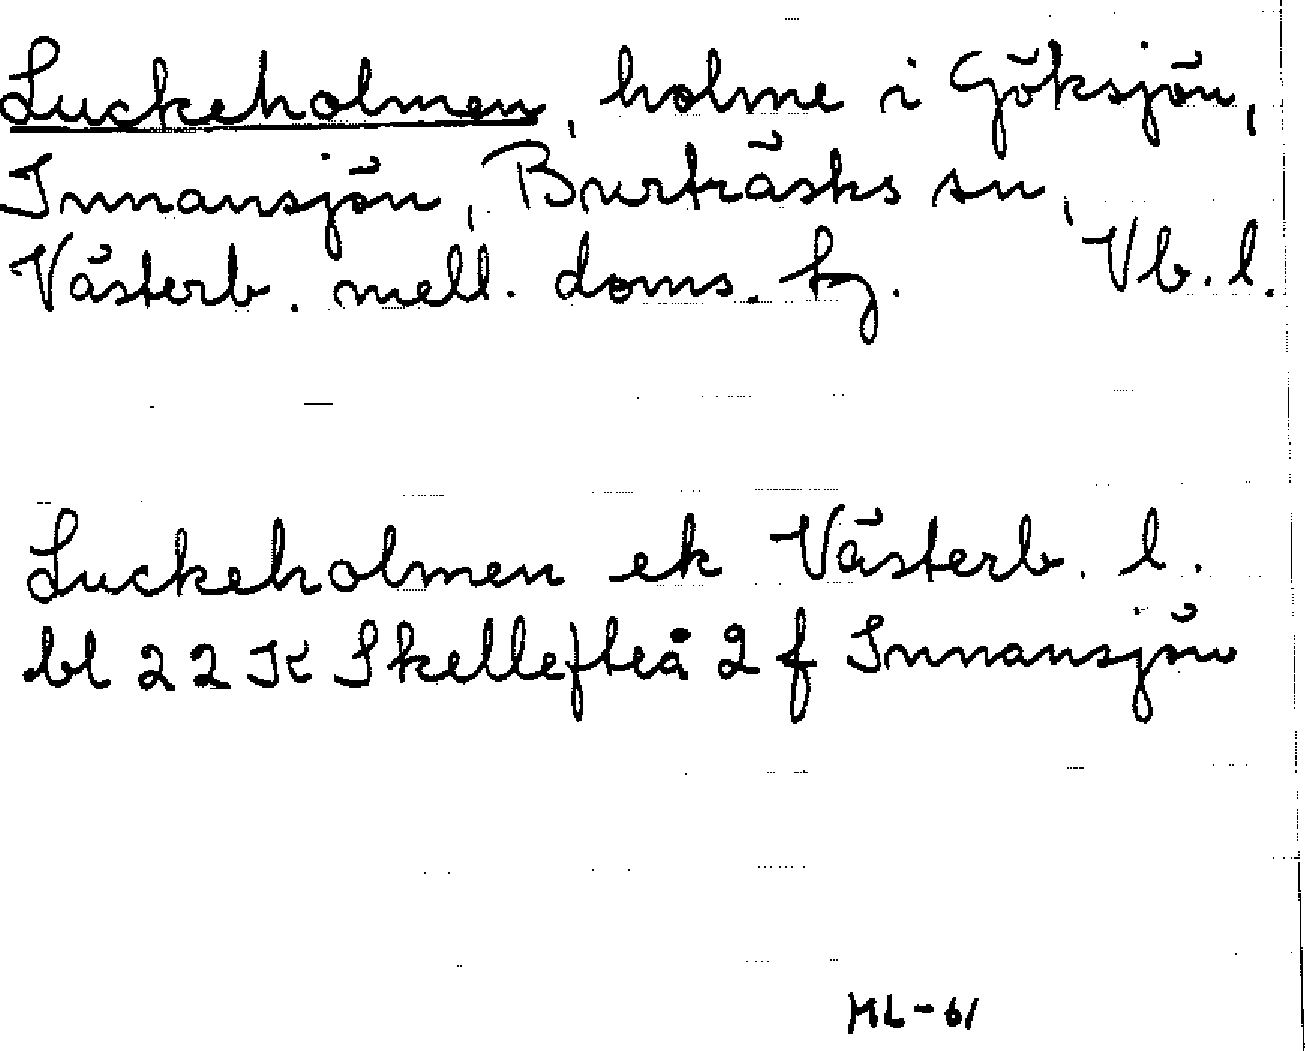 Luckeholmen, holme i Göksjön,
Innansjön, Burträsks sn,
Västerb. mell. doms. tg. Vb. l.
Luckeholmen ek Västerb. l.
bl 22 K Skellefteå 2 f Innansjön
ML-61